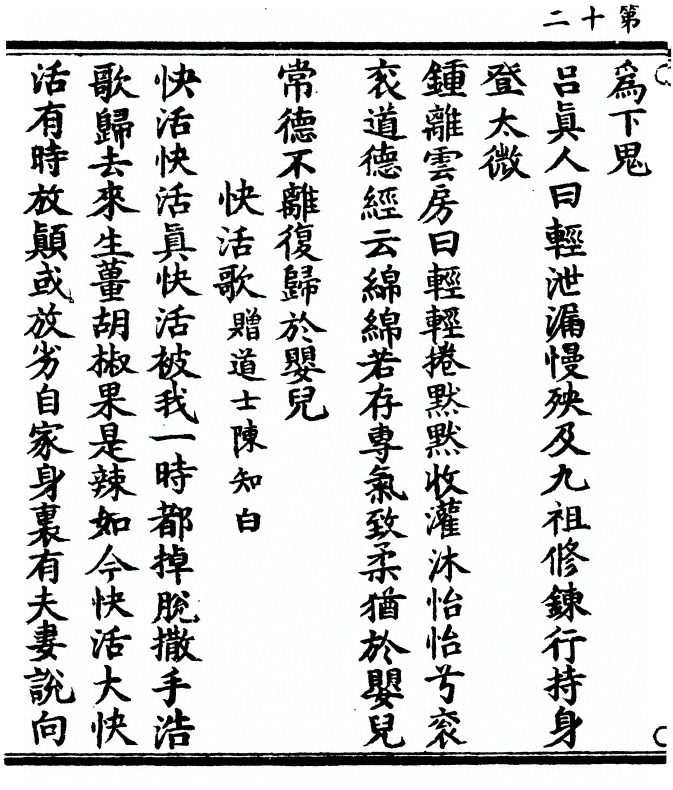 第十二
爲下鬼
呂眞人曰輕泄漏慢殃及九祖修鍊行持身
登太微
鍾離雲房曰輕輕捲默默收灌沐怡怡兮衮
衮道德經云綿綿若存專氣致柔猶於嬰兒
常德不離復歸於嬰兒
快活歌贈道士陳知白
快活快活眞快活被我一時都掉脫撒手浩
歌歸去來生薑胡椒果是辣如今快活大快
活有時放顛或放劣自家身裏有夫妻說向